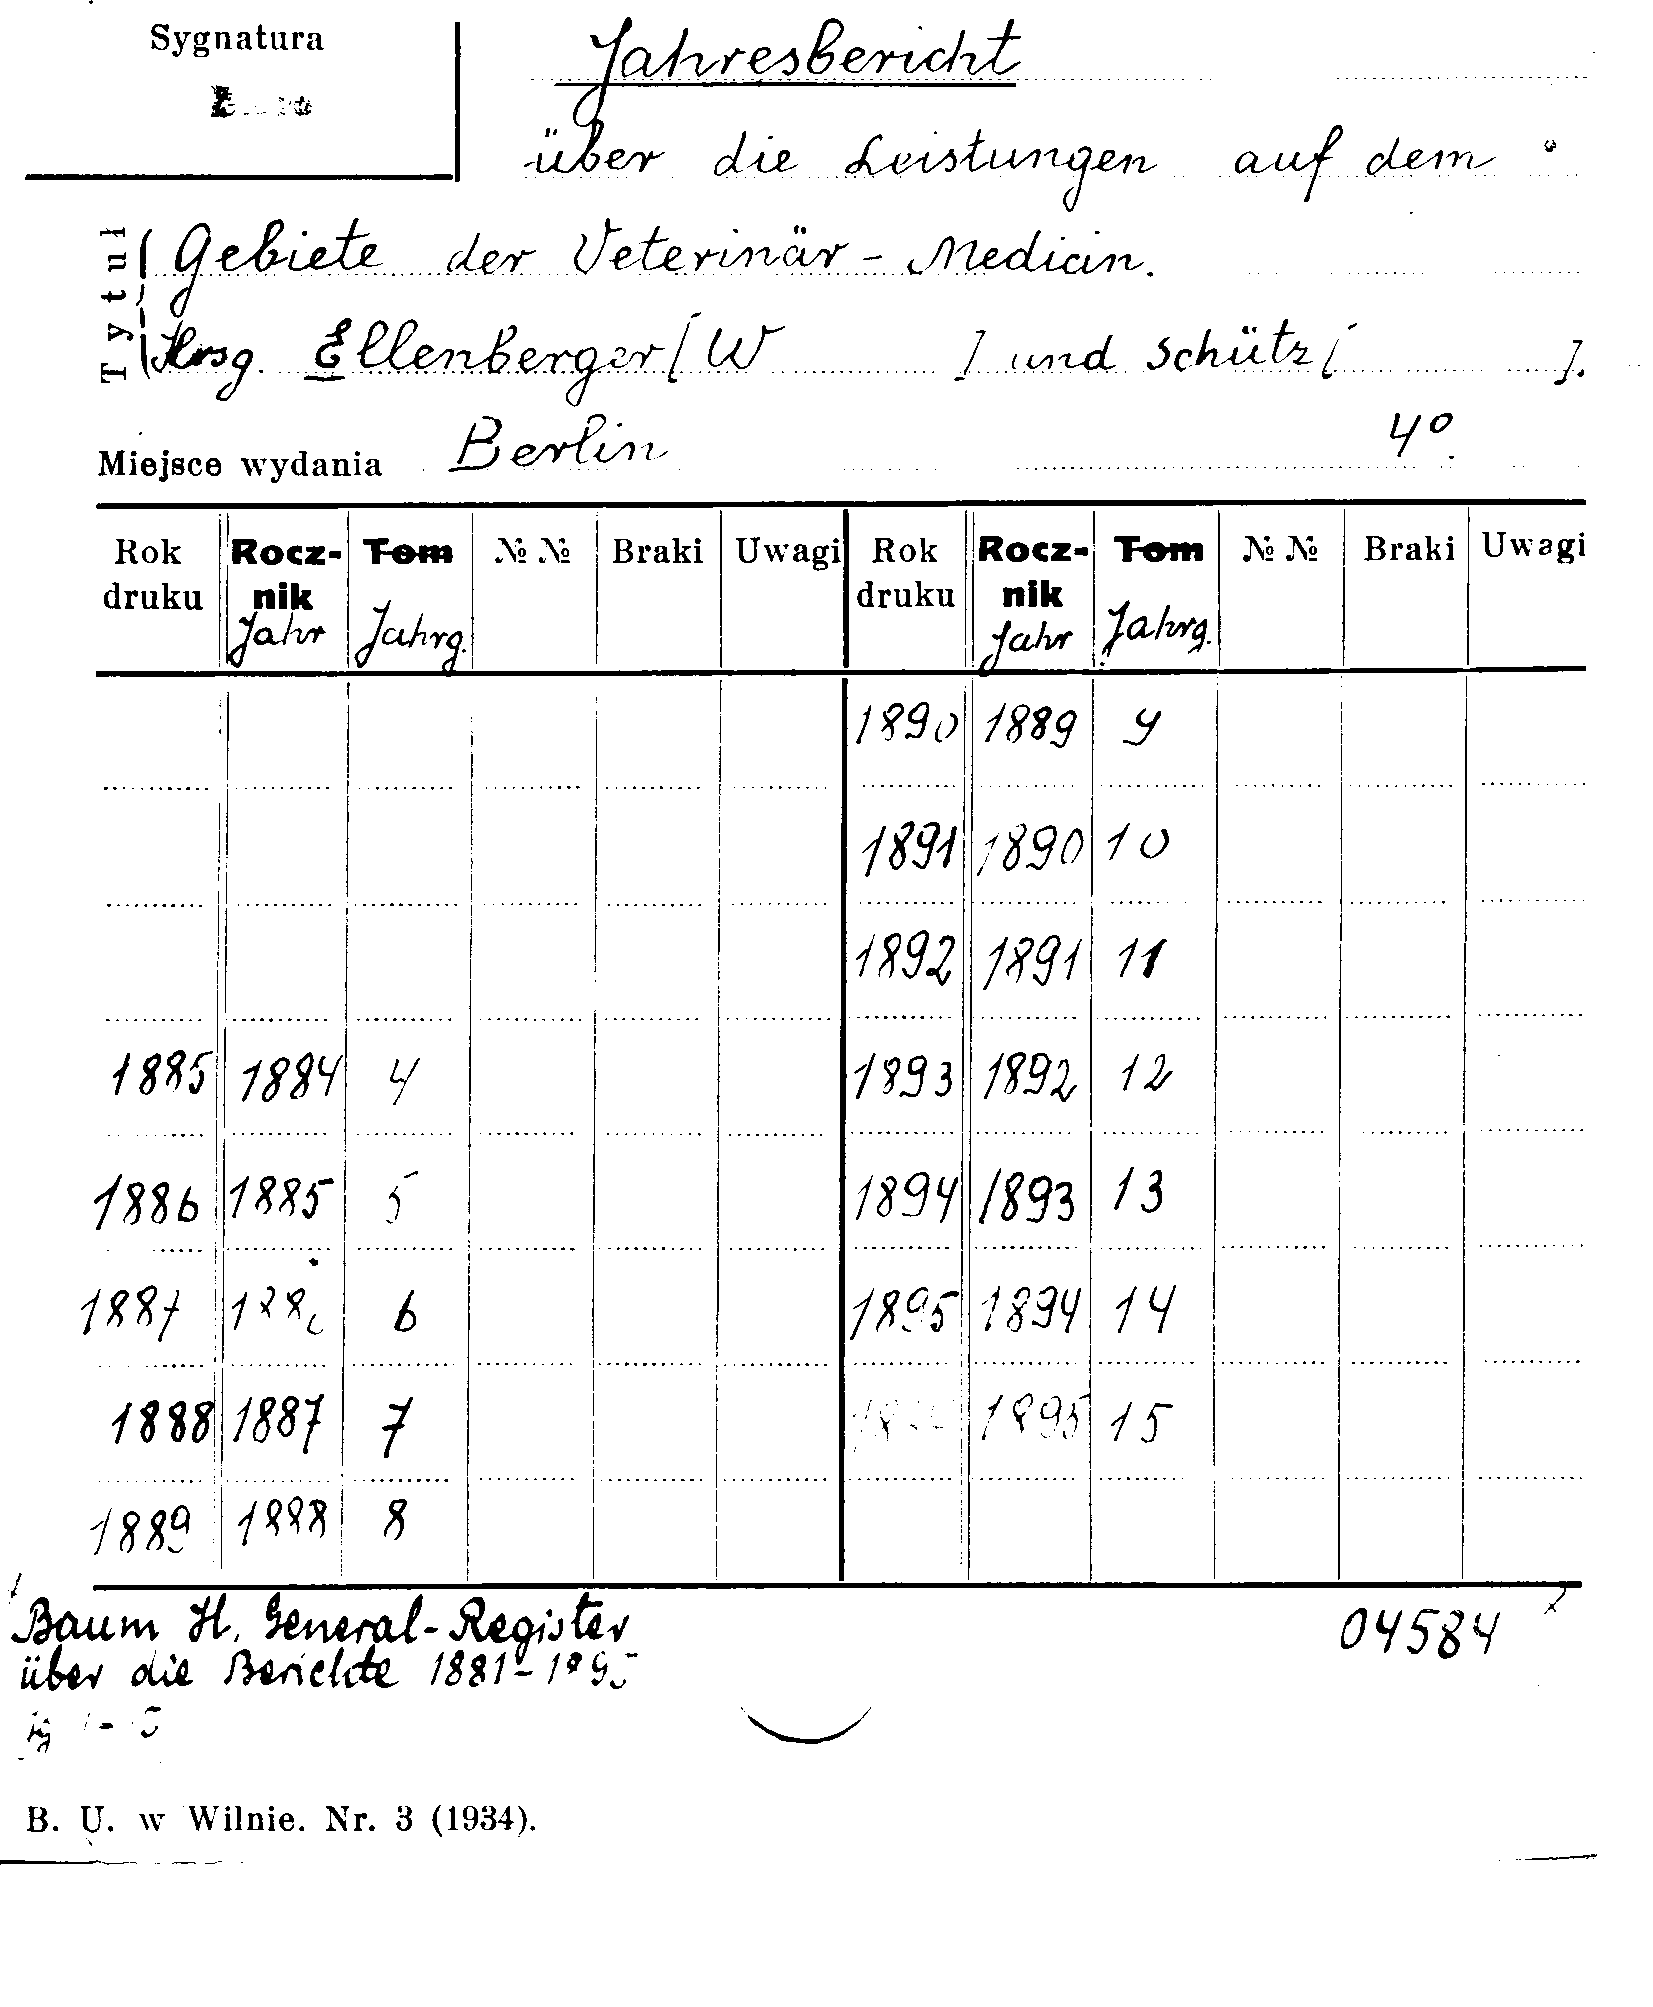 Sygnatura
Jahresbericht
über die Leistungen auf dem
Gebiete der Veterinär - Medicin.
Hrsg. Ellenberger [W ] und Schütz [ ].
Tytuł
Miejsce wydania Berlin 4º
Rok druku Rocznik Jahr Tom Jahrg. № № Braki Uwagi Rok druku Rocznik Jahr Tom Jahrg. № № Braki Uwagi
1890 1889 9
1891 1890 10
1892 1891 11
1885 1884 4 1893 1892 12
1886 1885 5 1894 1893 13
1887 6 1895 1894 14
1888 1887 7 1895 15
1889 1888 8
Baum H. General-Register 04584
über die Berichte 1881-1895
B. U. w Wilnie. Nr. 3 (1934).